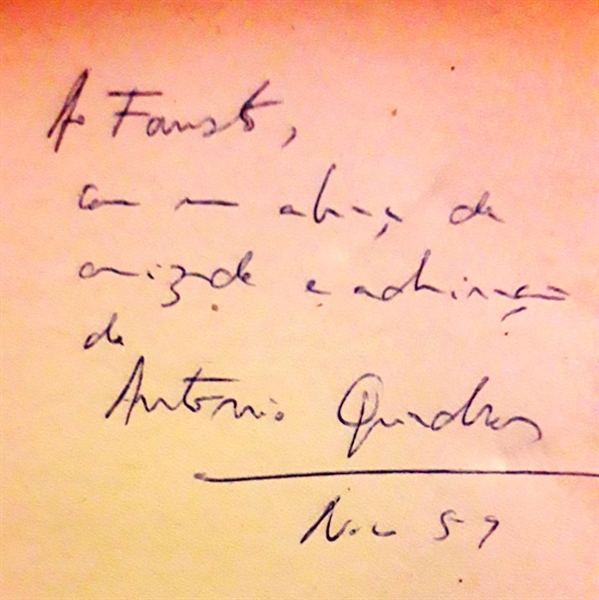 Ao Fausto,
com um abraço de
amizade e admiração
de
António Quadros
Nov 59